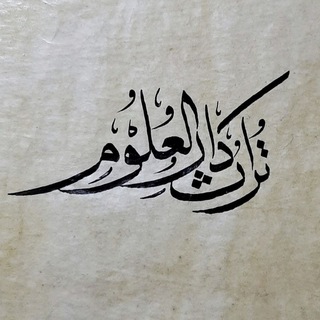 تُراث دار العُلُوم